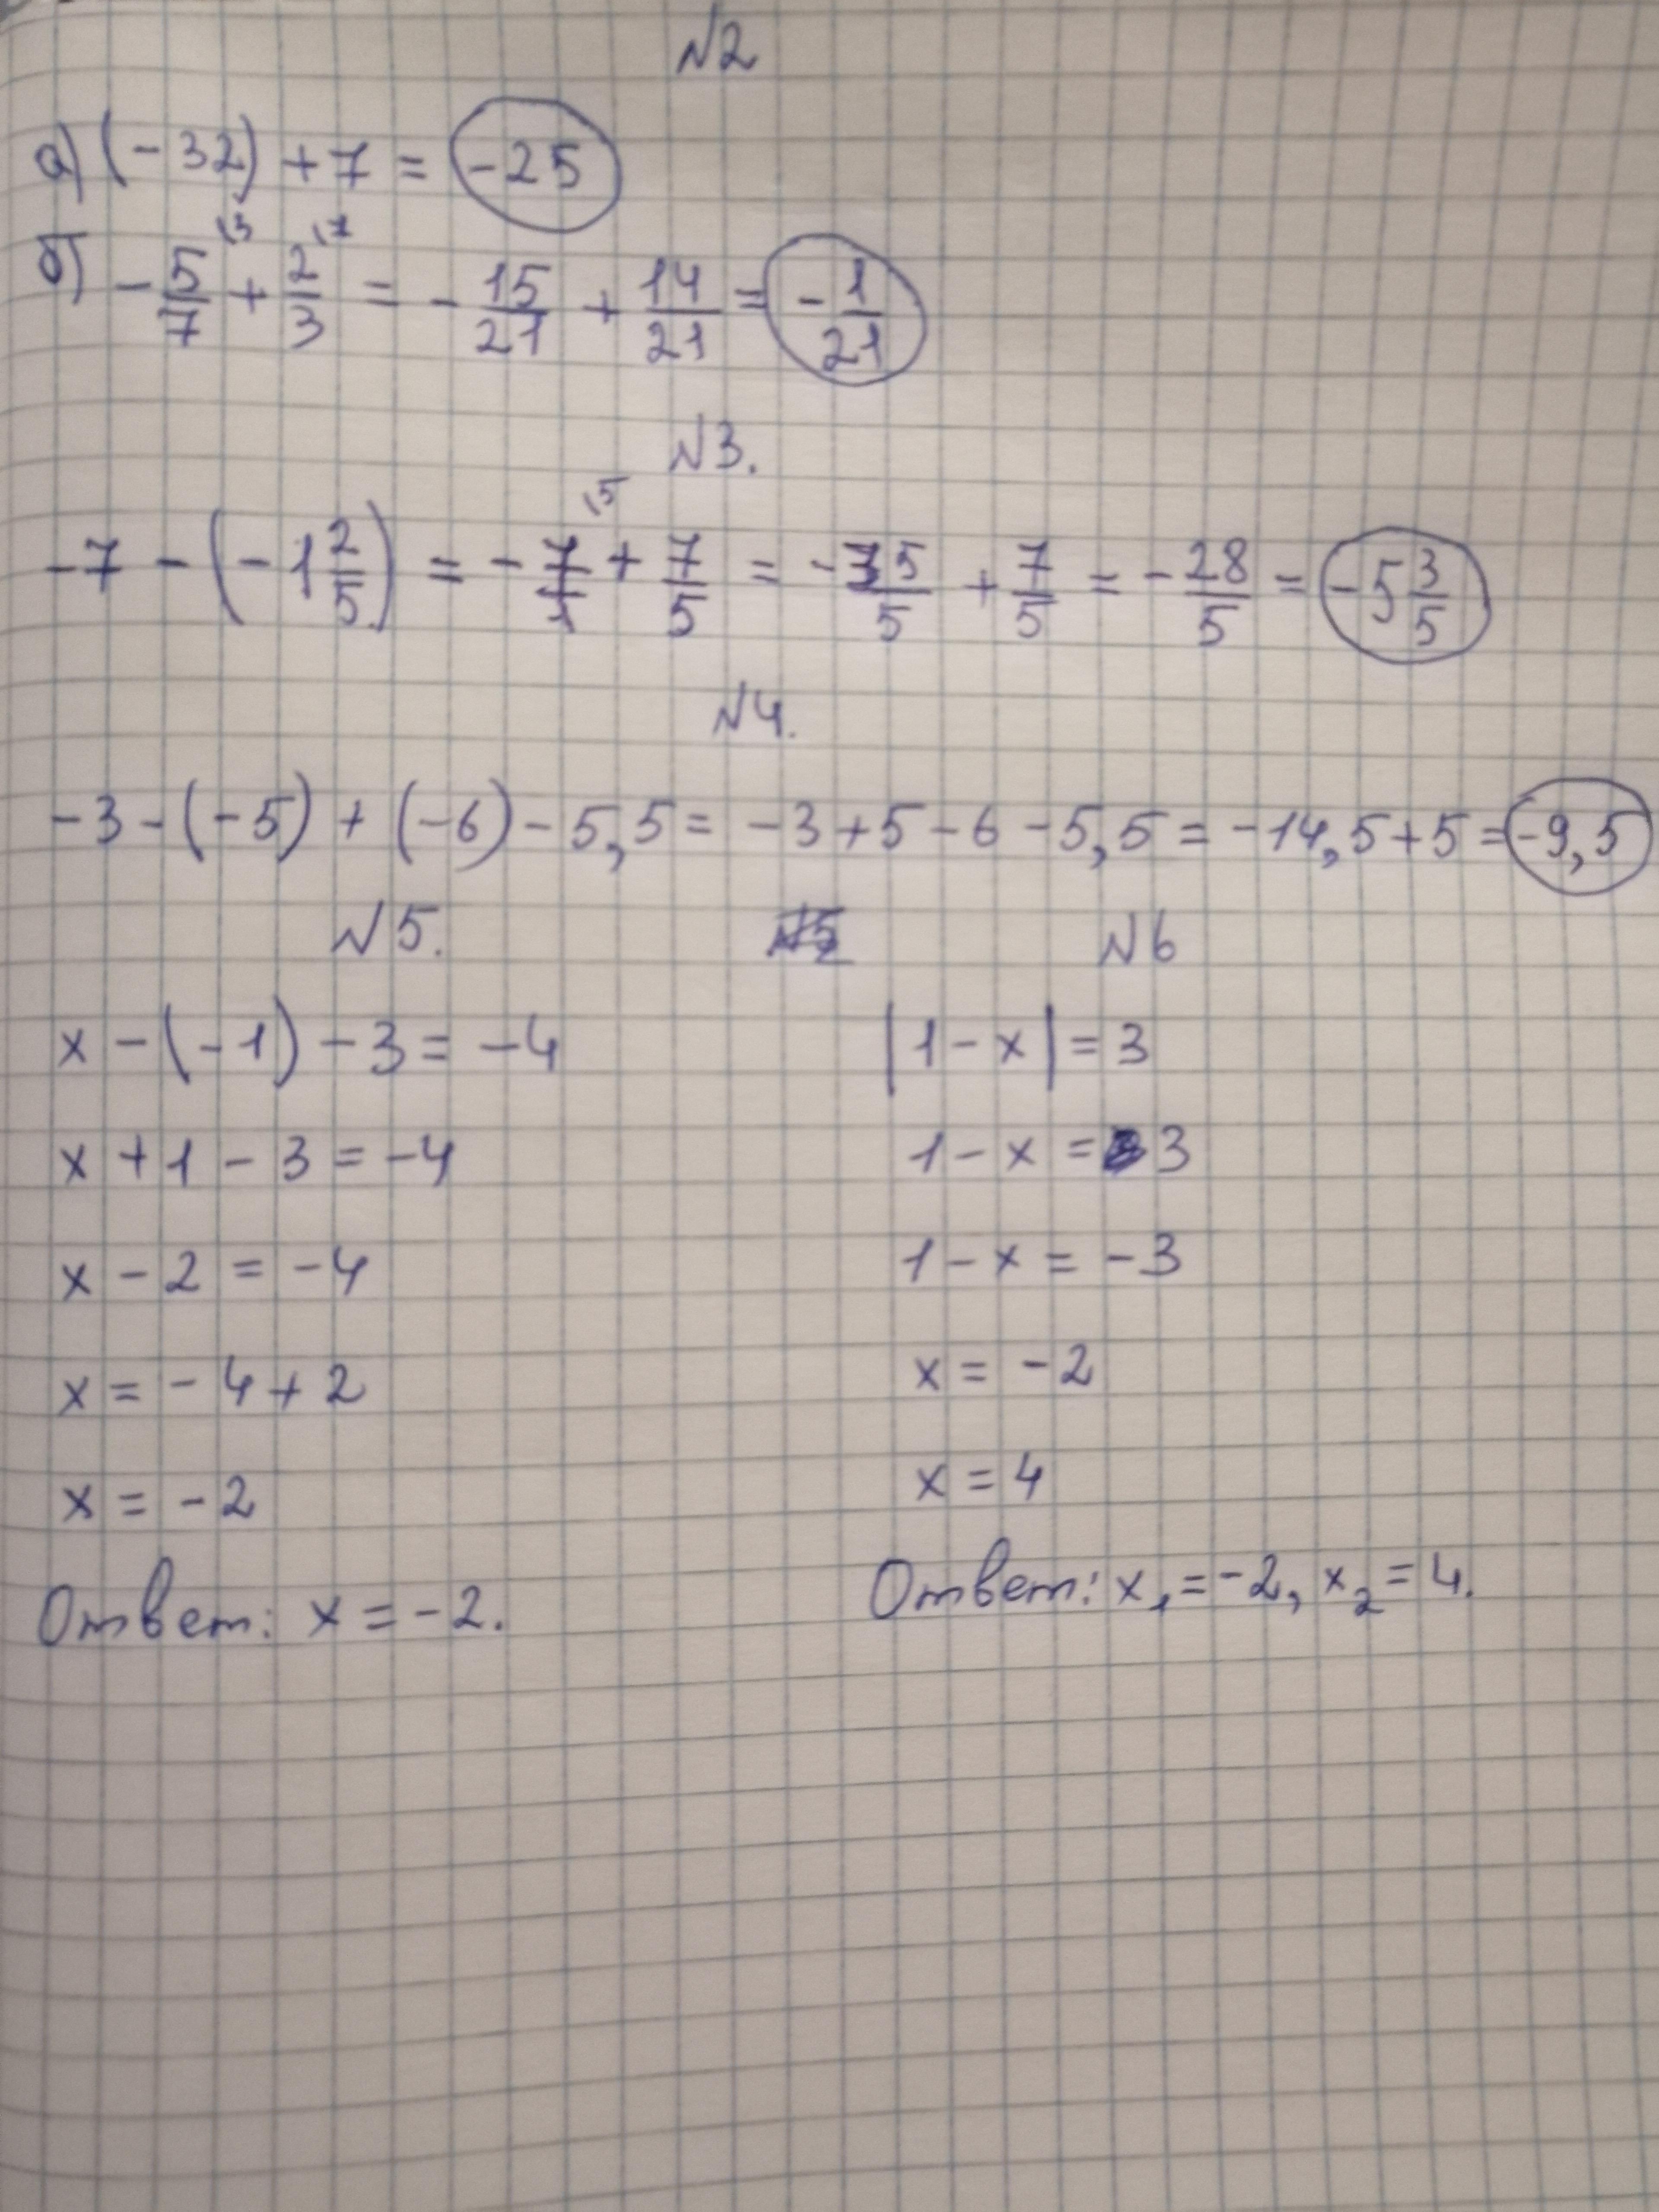 N2
а) (-32) + 7 = -25
б) -5/7 \3 + 2/3 \7 = -15/21 + 14/21 = -1/21
N3.
-7 - (-1 2/5) = -7/1 \5 + 7/5 = -35/5 + 7/5 = -28/5 = -5 3/5
N4.
-3 - (-5) + (-6) - 5,5 = -3 + 5 - 6 - 5,5 = -14,5 + 5 = -9,5
N5.
x - (-1) - 3 = -4
x + 1 - 3 = -4
x - 2 = -4
x = -4 + 2
x = -2
Ответ: x = -2.
N6
|1 - x| = 3
1 - x = 3
1 - x = -3
x = -2
x = 4
Ответ: x₁ = -2, x₂ = 4.